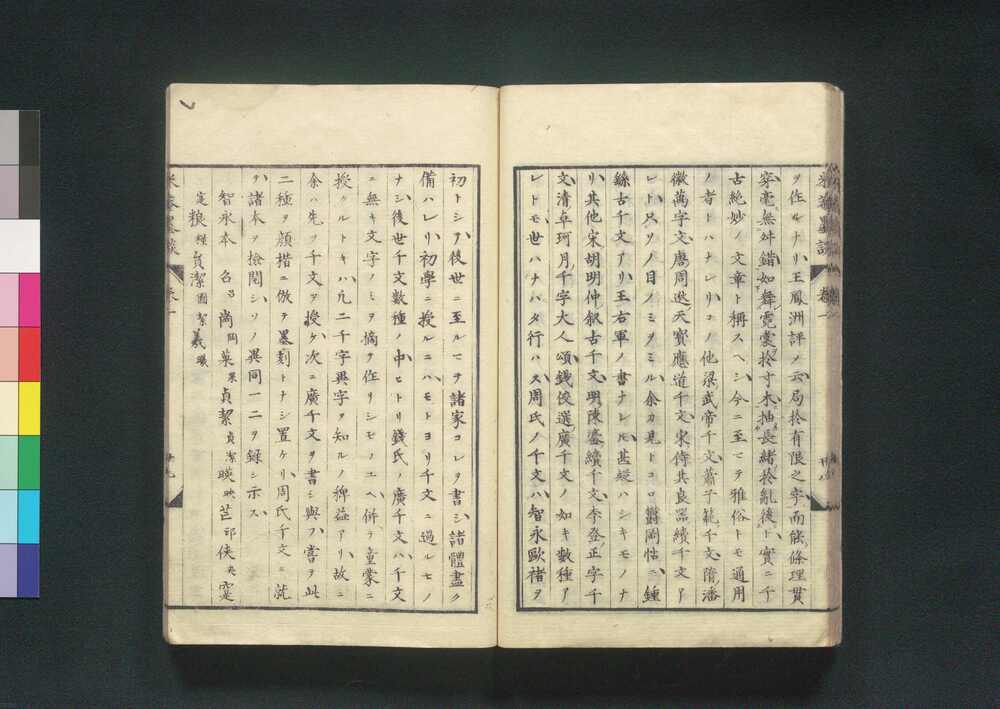 ヲ作ルナリ王鳳洲評ノ云局於有限之字而能條理貫
穿毫無舛錯如舞霓裳於寸木抽長緒於亂後ト實ニ千
古絶妙ノ文章ト稱スヘシ今ニ至マテ雅俗トモ通用
ノ者トハナレリコノ他梁武帝千文蕭子範千文隋潘
徽萬字文唐周逖天寳應道千文宋侍其良器續千文ア
レトハ只ソノ目ノミヲミル余カ見トコロ欝岡帖ニ鍾
繇古千文アリ王右軍ノ書ナレトモ甚疑ハシキモノナ
リ其他宋胡明仲叙古千文明陳鎏續千文李登正字千
文清卓珂月千字大人頌錢俊選廣千文ノ如キ數種ア
レトモ世ハナハタ行ハス周氏ノ千文ハ智永歐褚ヲ
初トシヲ後世ニ至ルマヲ諸家コレヲ書シ諸體盡ク
備ハレリ初學ニ授ルニハモトヨリ千文ニ過ルモノ
ナシ後世千文數種ノ中ヒトリ錢氏ノ廣千文ハ千文
ニ無キ文字ノミヲ摘ヲ作リシモノユヘ併テ童蒙ニ
授クルトキハ凡二千字異字ヲ知ルノ稗益アリ故ニ
余ハ先ヲ千文ヲ授ケ次ニ廣千文ヲ書シ與フ甞ヲ此
二種ヲ顔楷ニ倣ヲ墨刻トナシ置ケリ周氏千文ニ就
ヲ諸本ヲ撿閲シソノ異同一二ヲ録シ示ス
智永本 召 尚 菓果貞絜貞潔暎映芒邙俠夾寔
寔粮粮貞潔圂絜羲曦